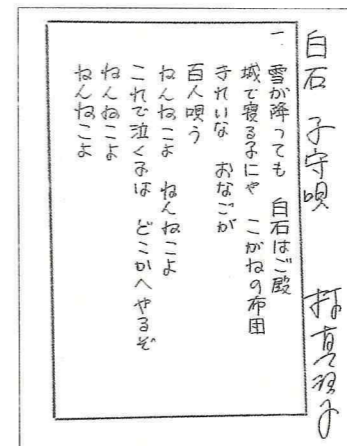 白石 子守唄
一、雪が降っても 白石はご殿
城で寝る子にゃ こがねの布団
きれいな おなごが
百人唄う
ねんねこよ ねんねこよ
これで泣く子は どこかへやるぞ
ねんねこよ
ねんねこよ